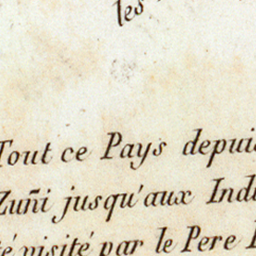 les
Tout ce Pays depuis
Zuñi jusqu'aux Ind
té visité par le Pere